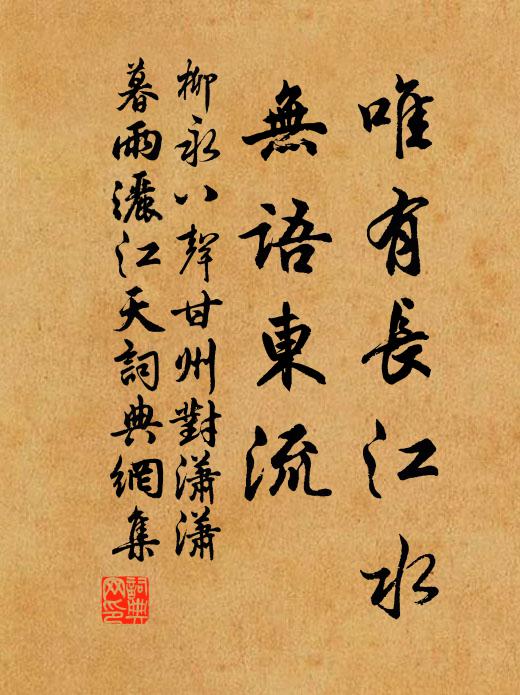 唯有長江水
無語東流
柳永八聲甘州對瀟瀟
暮雨灑江天詞典網集
詞典網印